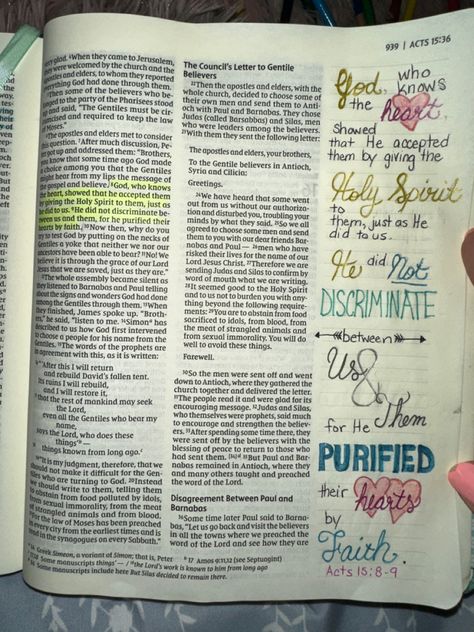 939 | ACTS 15:36
very glad. ⁴When they came to Jerusalem,
they were welcomed by the church and the
apostles and elders, to whom they reported
everything God had done through them.
⁵Then some of the believers who be-
longed to the party of the Pharisees stood
up and said, "The Gentiles must be cir-
cumcised and required to keep the law
of Moses."
⁶The apostles and elders met to consider
this question. ⁷After much discussion, Pe-
ter got up and addressed them: "Brothers,
you know that some time ago God made
a choice among you that the Gentiles
might hear from my lips the message of
the gospel and believe. ⁸God, who knows
the heart, showed that he accepted them
by giving the Holy Spirit to them, just as
he did to us. ⁹He did not discriminate be-
tween us and them, for he purified their
hearts by faith. ¹⁰Now then, why do you
try to test God by putting on the necks of
Gentiles a yoke that neither we nor our
ancestors have been able to bear? ¹¹No! We
believe it is through the grace of our Lord
Jesus that we are saved, just as they are."
¹²The whole assembly became silent as
they listened to Barnabas and Paul telling
about the signs and wonders God had done
among the Gentiles through them. ¹³When
they finished, James spoke up. "Broth-
ers," he said, "listen to me. ¹⁴Simon
described to us how God first intervened
to choose a people for his name from the
Gentiles. ¹⁵The words of the prophets are
in agreement with this, as it is written:
¹⁶" 'After this I will return
and rebuild David's fallen tent.
Its ruins I will rebuild,
and I will restore it,
¹⁷that the rest of mankind may seek
the Lord,
even all the Gentiles who bear my
name,
says the Lord, who does these
things'
¹⁸things known from long ago.
¹⁹"It is my judgment, therefore, that we
should not make it difficult for the Gen-
tiles who are turning to God. ²⁰Instead
we should write to them, telling them
to abstain from food polluted by idols,
from sexual immorality, from the meat
of strangled animals and from blood.
²¹For the law of Moses has been preached
in every city from the earliest times and is
read in the synagogues on every Sabbath."
The Council's Letter to Gentile
Believers
²²Then the apostles and elders, with the
whole church, decided to choose some of
their own men and send them to Anti-
och with Paul and Barnabas. They chose
Judas (called Barsabbas) and Silas, men
who were leaders among the believers.
²³With them they sent the following letter:
The apostles and elders, your brothers,
To the Gentile believers in Antioch,
Syria and Cilicia:
Greetings.
²⁴We have heard that some went
out from us without our authoriza-
tion and disturbed you, troubling your
minds by what they said. ²⁵So we all
agreed to choose some men and send
them to you with our dear friends Bar-
nabas and Paul — ²⁶men who have
risked their lives for the name of our
Lord Jesus Christ. ²⁷Therefore we are
sending Judas and Silas to confirm by
word of mouth what we are writing.
²⁸It seemed good to the Holy Spirit
and to us not to burden you with any-
thing beyond the following require-
ments: ²⁹You are to abstain from food
sacrificed to idols, from blood, from
the meat of strangled animals and
from sexual immorality. You will do
well to avoid these things.
Farewell.
³⁰So the men were sent off and went
down to Antioch, where they gathered the
church together and delivered the letter.
³¹The people read it and were glad for its
encouraging message. ³²Judas and Silas,
who themselves were prophets, said much
to encourage and strengthen the believ-
ers. ³³After spending some time there, they
were sent off by the believers with the
blessing of peace to return to those who
had sent them. ³⁵But Paul and Bar-
nabas remained in Antioch, where they
and many others taught and preached
the word of the Lord.
Disagreement Between Paul and
Barnabas
³⁶Some time later Paul said to Barna-
bas, "Let us go back and visit the believers
in all the towns where we preached the
word of the Lord and see how they are
14 Greek Simeon, a variant of Simon; that is, Peter
17 Amos 9:11,12 (see Septuagint)
18 Some manuscripts things' — / ¹⁸the Lord's work is known to him from long ago
Some manuscripts include here But Silas decided to remain there.
God, who
the knows
heart,
showed
that He accepted
them by giving the
Holy Spirit
to
them, just as He
did to us.
He did Not
DISCRIMINATE
between
Us
&
for He Them
PURIFIED
their hearts
by
Faith.
Acts 15:8-9